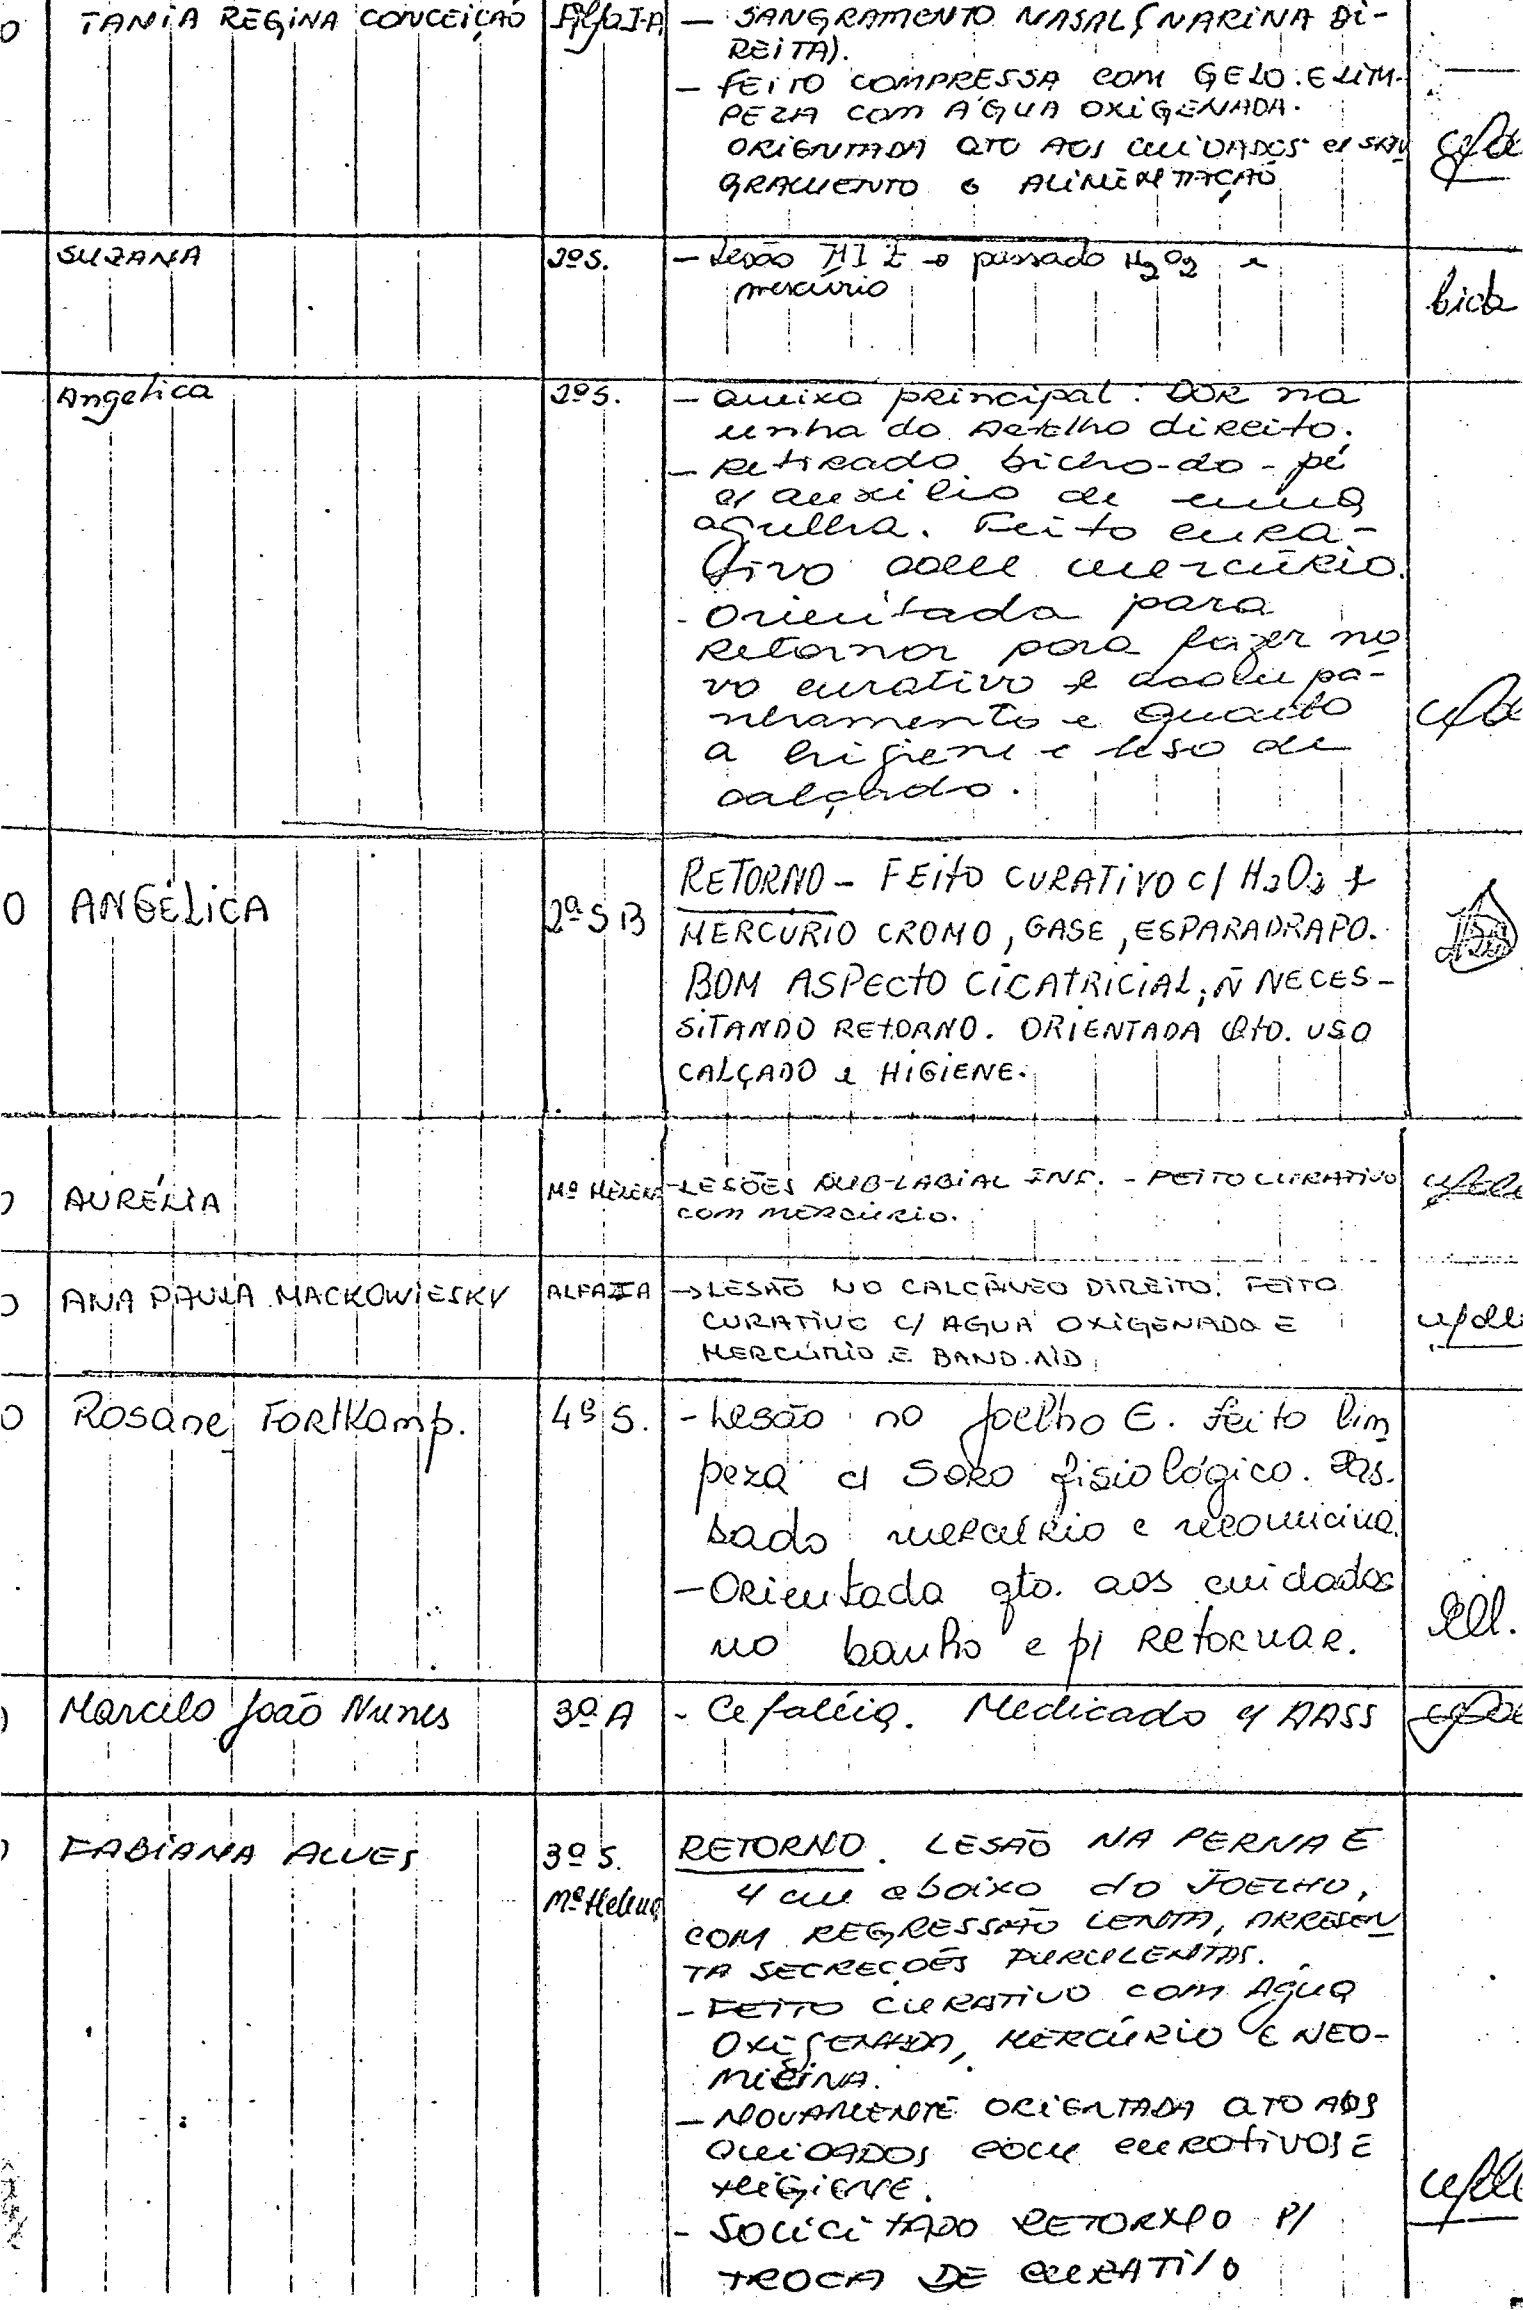 TANIA REGINA CONCEIÇÃO
— SANGRAMENTO NASAL (NARINA DI-
REITA).
— FEITO COMPRESSA COM GELO E LIM-
PEZA COM AGUA OXIGENADA.
ORIENTADA QTO AOS CUIDADOS c/ SAN
GRAMENTO e ALIMENTAÇÃO
SUZANA
2ªS.
— Lesão → passado H2O2 e
mercúrio
Angelica
2ªS.
— Queixa principal: DOR na
unha do Artelho direito.
— Retirado bicho-do-pé
c/ auxílio de uma
agulha. Feito cura-
tivo com mercúrio.
- Orientada para
retornar para fazer no
vo curativo e acompa-
nhamento e quanto
a higiene e uso de
calçado.
0
ANGÉLICA
2ª S B
RETORNO – FEITO CURATIVO C/ H2O2 +
MERCÚRIO CROMO, GASE, ESPARADRAPO.
BOM ASPECTO CICATRICIAL, Ñ NECES-
SITANDO RETORNO. ORIENTADA QTO. USO
CALÇADO e HIGIENE.
AURÉLIA
Mª HELENA
- LESÕES SUB-LABIAL INF. - FEITO CURATIVO
COM MERCÚRIO.
ANA PAULA MACKOWIESKY
ALFA IA
→ LESÃO NO CALCÂNEO DIREITO. FEITO
CURATIVO C/ AGUA OXIGENADA E
MERCÚRIO E BAND-AID
0
Rosane Fortkamp.
4ª S.
- Lesão no joelho E. feito lim
peza c/ Soro fisiológico. Pas-
sado mercúrio e neomicina.
— Orientada qto. aos cuidados
no banho e p/ Retornar.
Marcelo João Nunes
3ª A
- Cefaléia. Medicado c/ AASS
FABIANA ALVES
3ª S.
Mª Helena
RETORNO. LESÃO NA PERNA E
4 cm abaixo do JOELHO,
COM REGRESSÃO LENTA, APRESEN
TA SECREÇOES PURULENTAS.
- FEITO CURATIVO COM AGUA
OXIGENADA, MERCÚRIO E NEO-
MICINA.
— NOVAMENTE ORIENTADA QTO AOS
CUIDADOS COM CURATIVOS E
HIGIENE.
- SOLICITADO RETORNO P/
TROCA DE CURATIVO